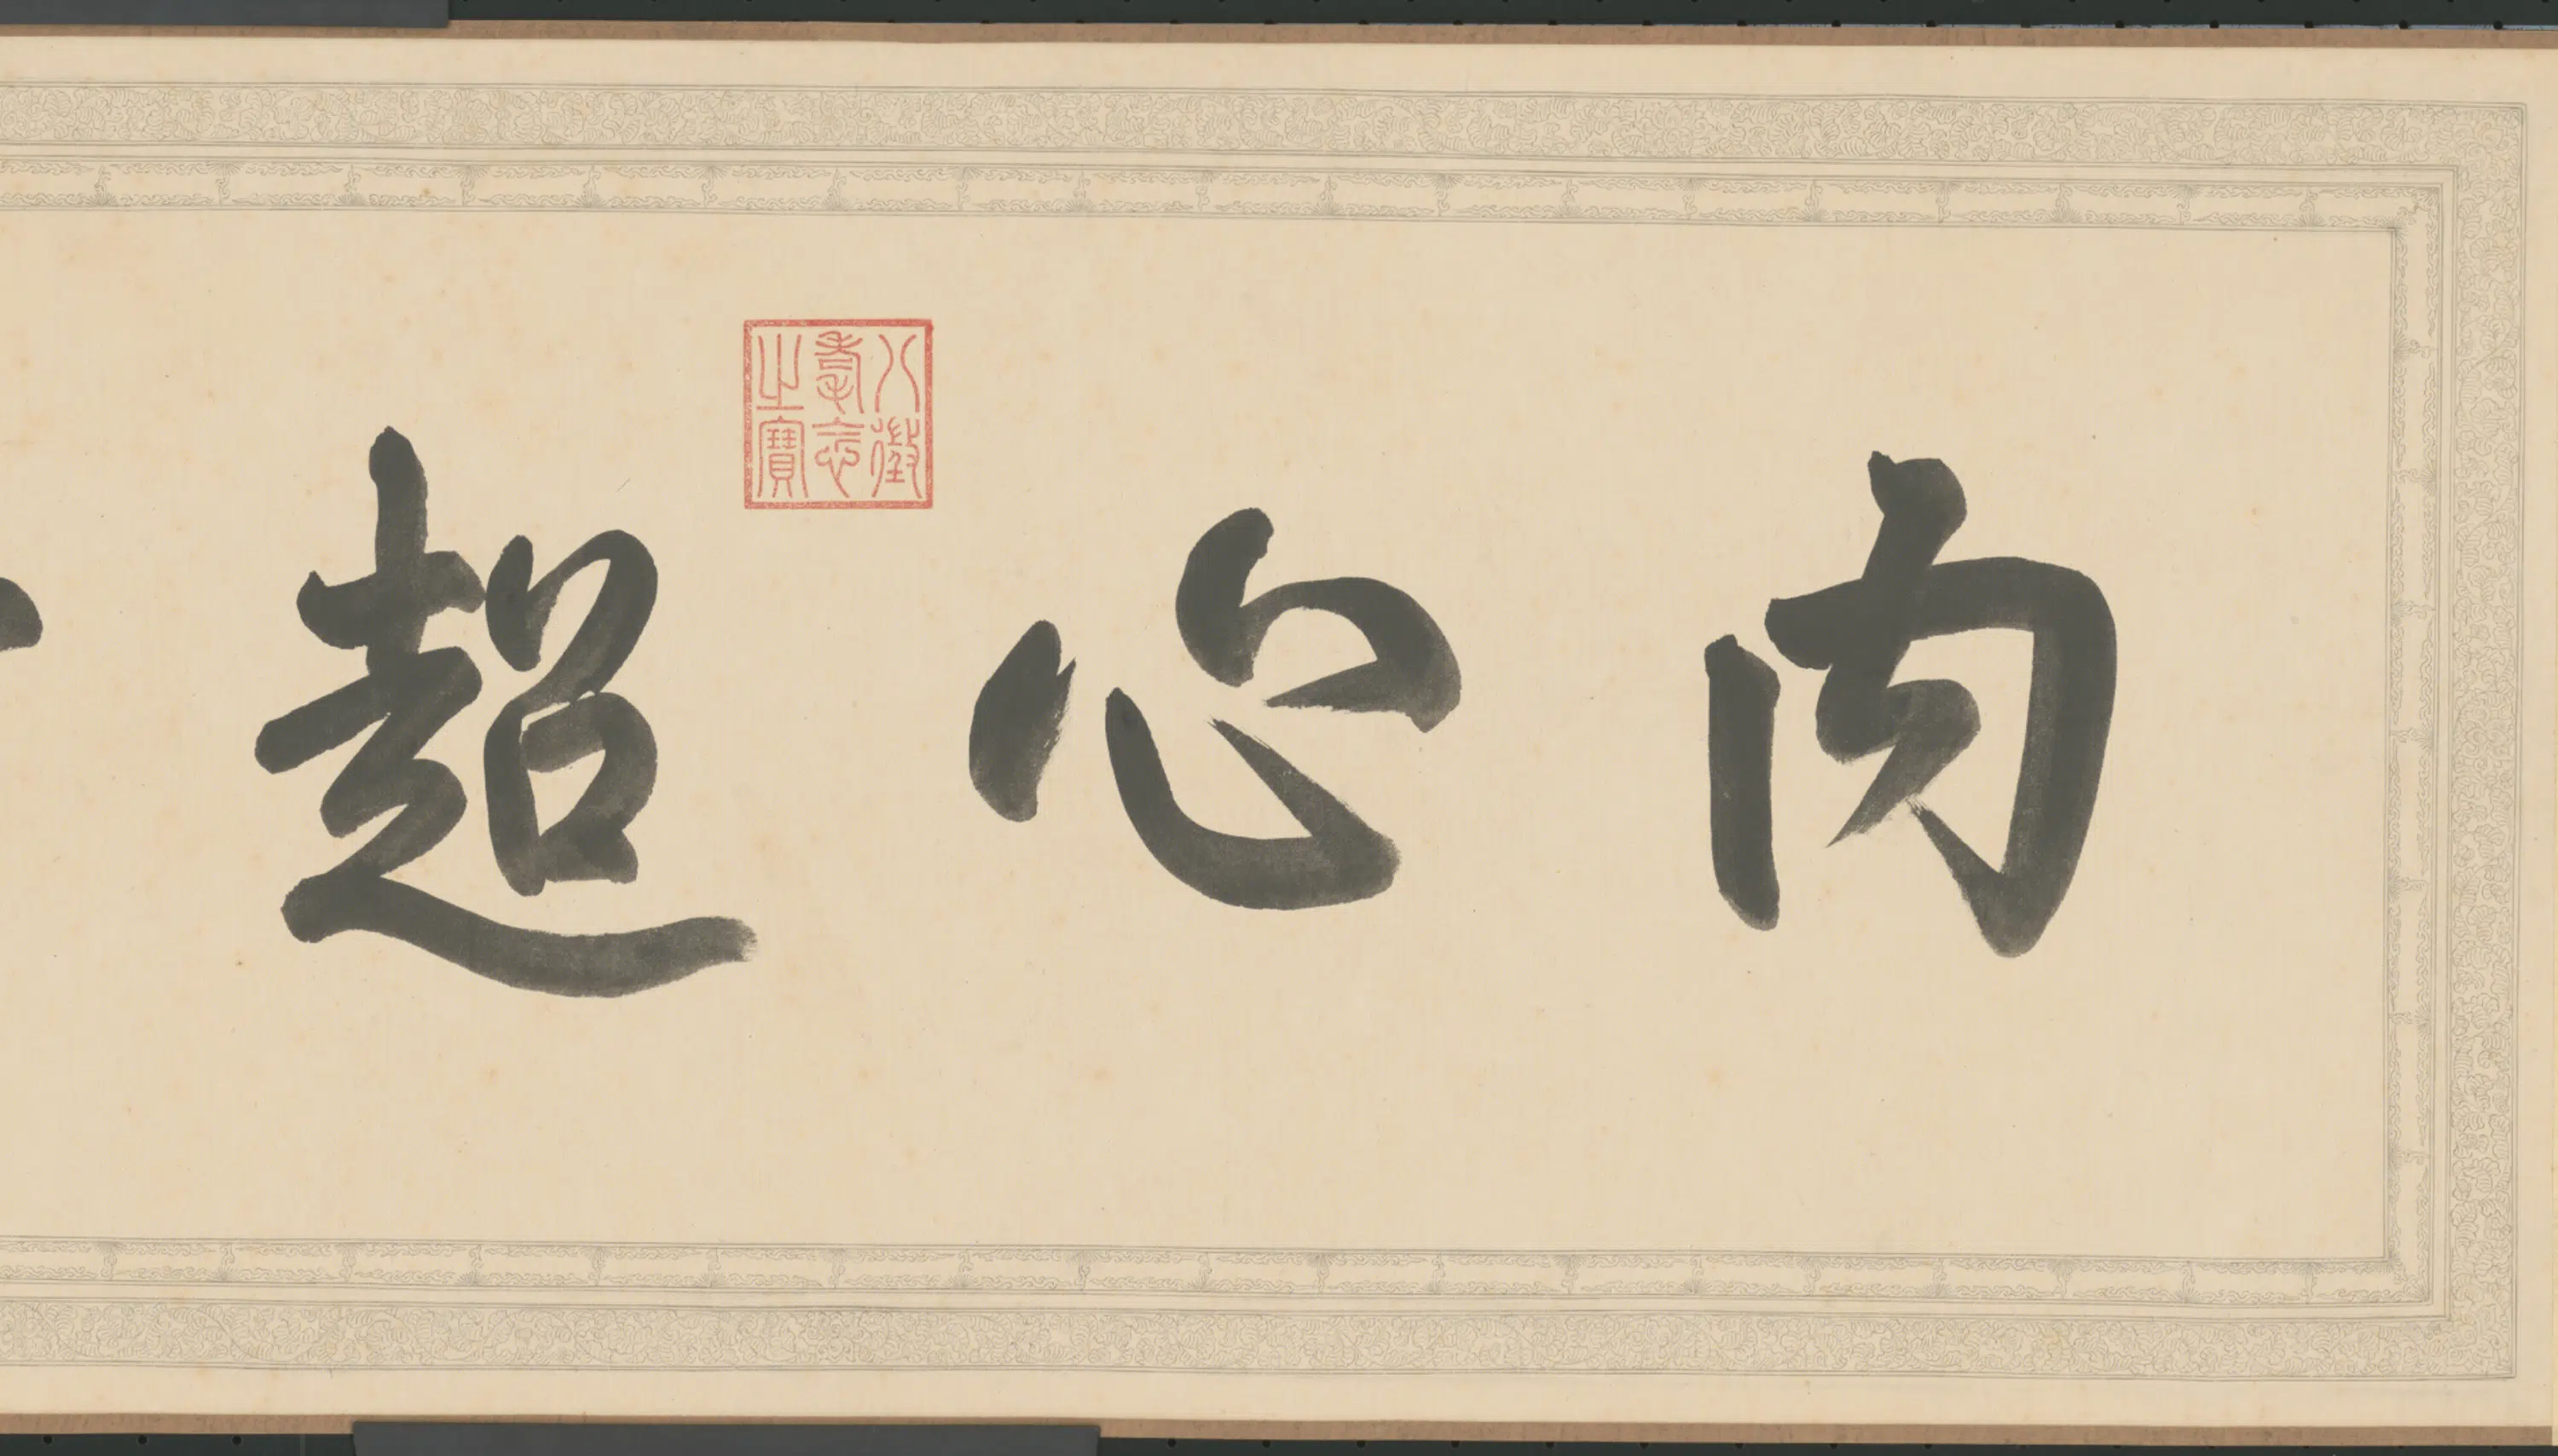 内心超
八徵耄念之寶